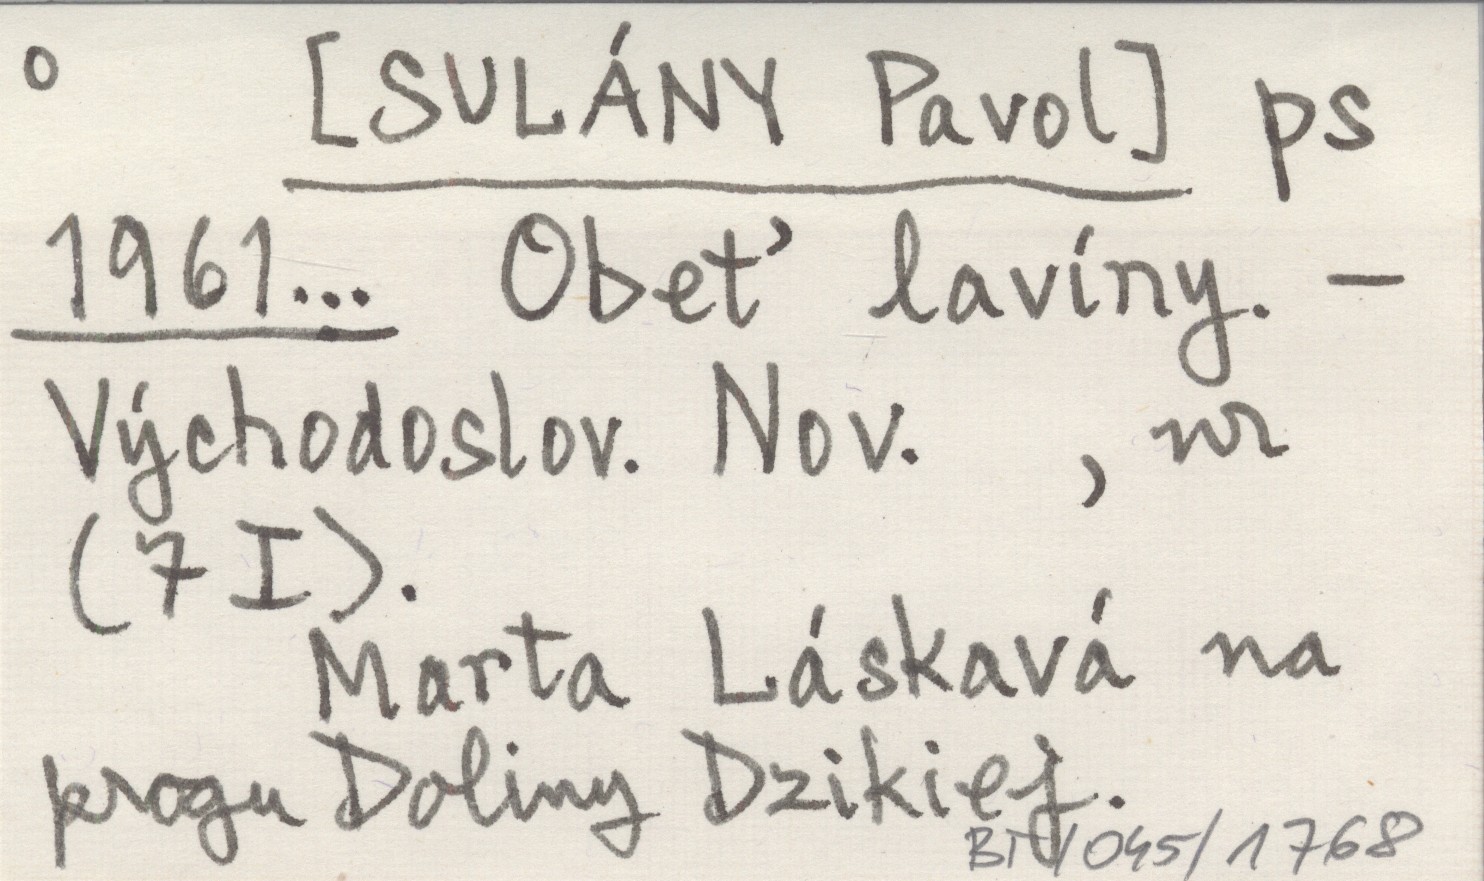 o [SULÁNY Pavol] ps
1961... Obeť lavíny. –
Východoslov. Nov. , nr
(7 I).
Marta Láskavá na
progu Doliny Dzikiej.
BT/045/1768